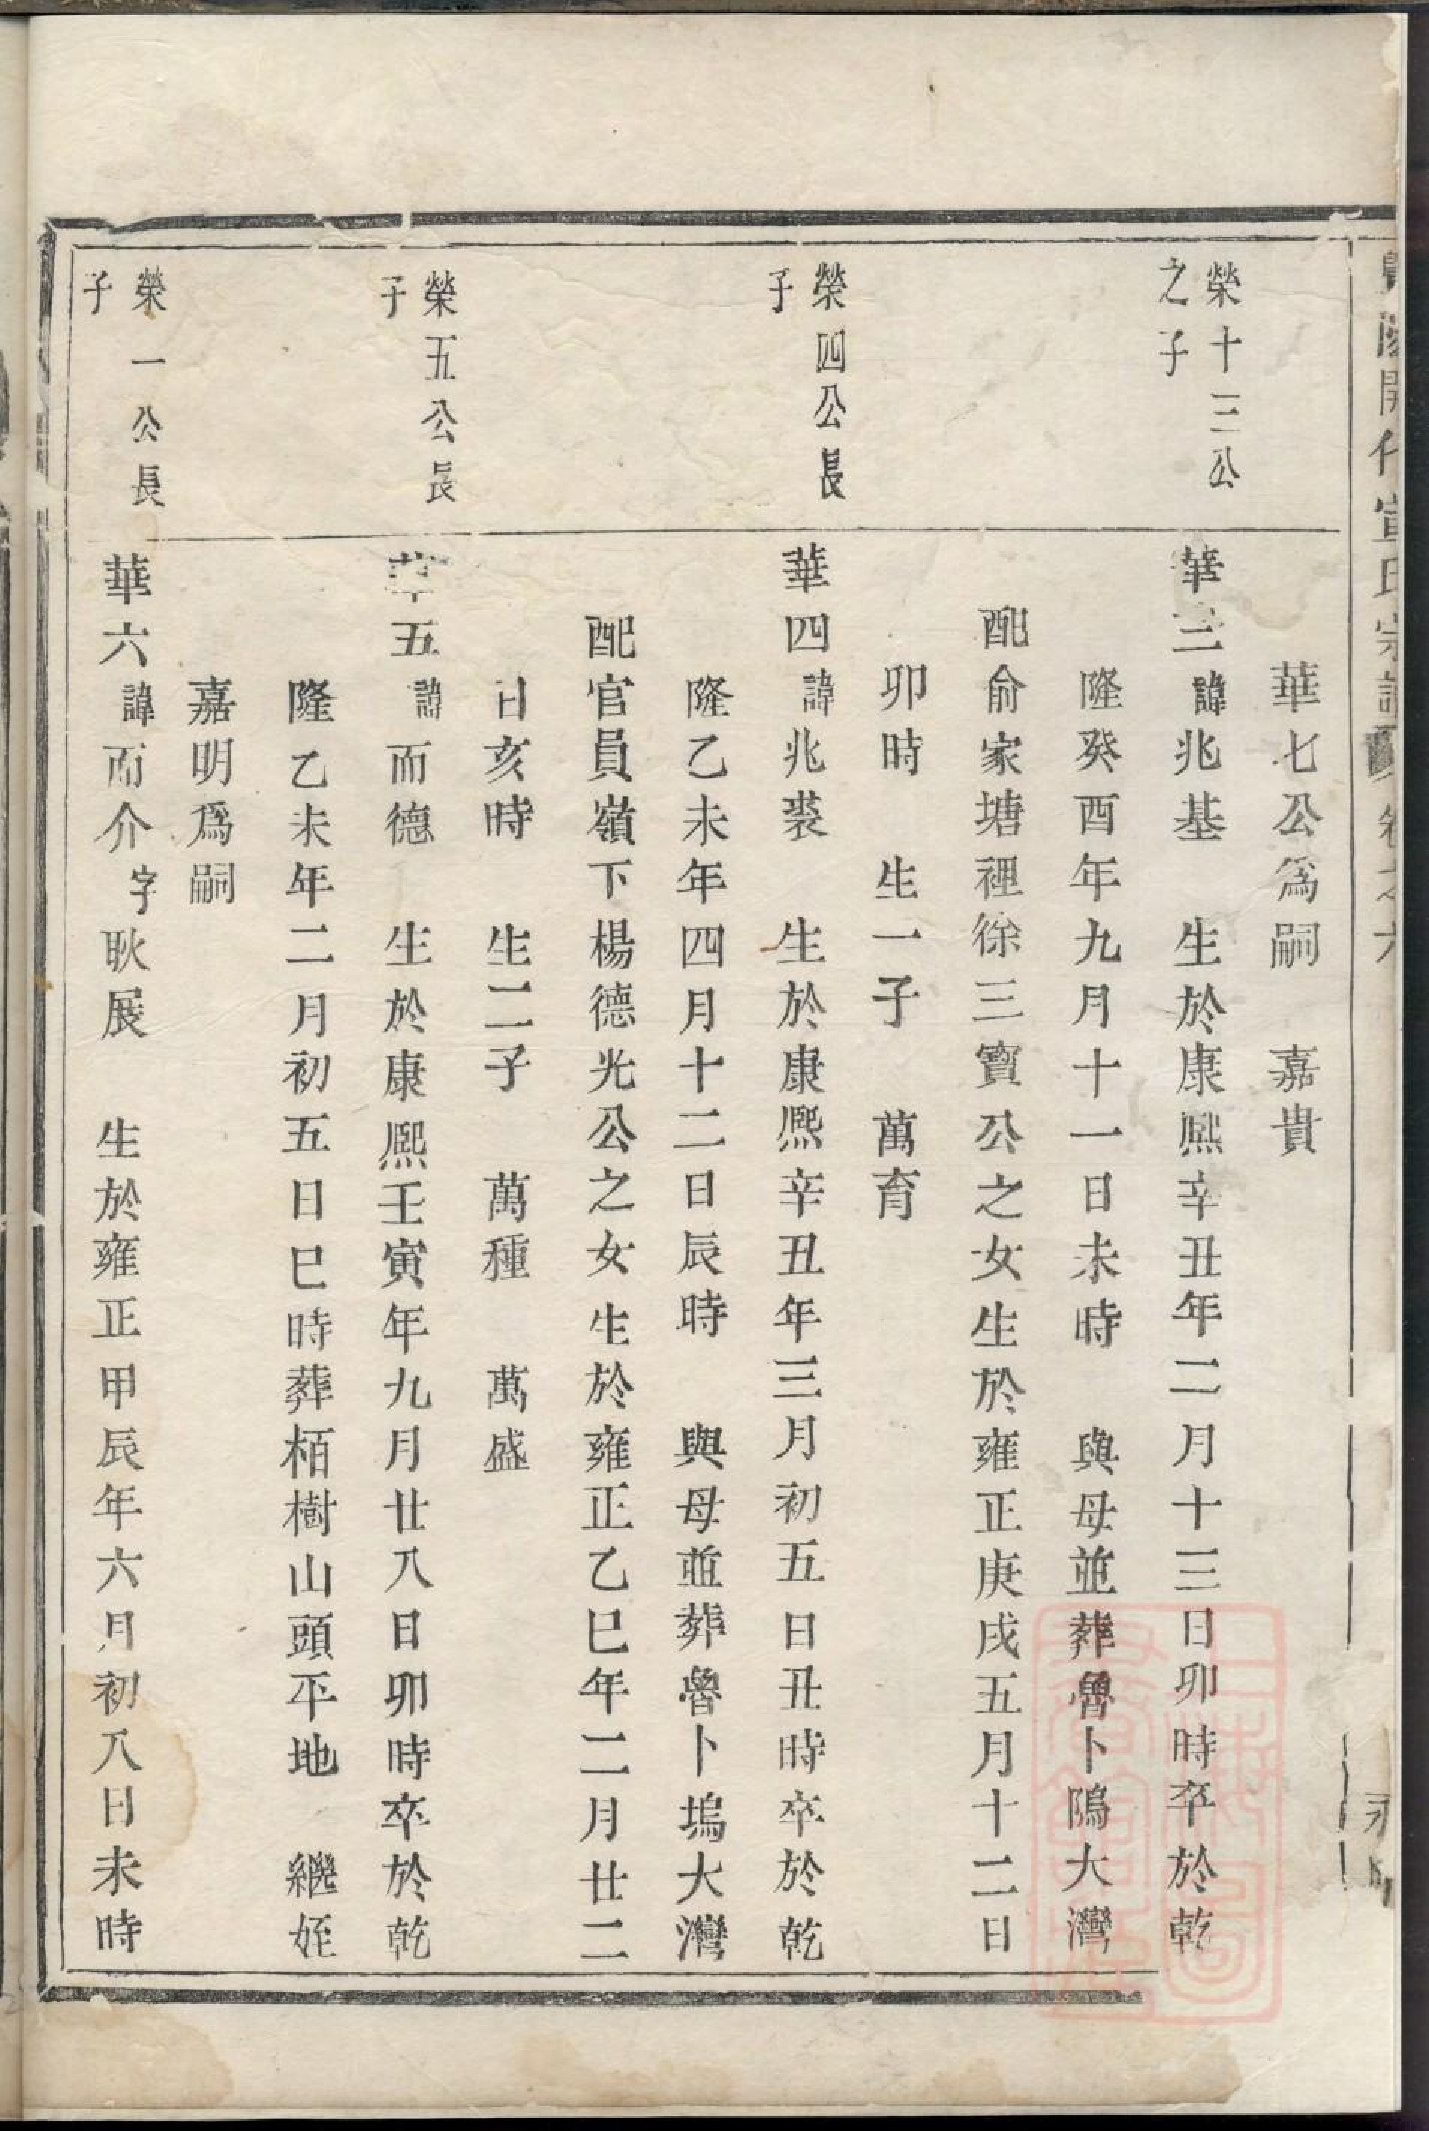 陽開化宣氏宗譜 卷之六
華七公爲嗣 嘉貴
榮十三公
之子
華三諱兆基 生於康熙辛丑年二月十三日卯時卒於乾
隆癸酉年九月十一日未時 與母並葬魯卜隖大灣
配俞家塘裡徐三寶公之女生於雍正庚戌五月十二日
卯時 生一子 萬育
榮四公長
子
華四諱兆裘 生於康熙辛丑年三月初五日丑時卒於乾
隆乙未年四月十二日辰時 與母並葬魯卜塢大灣
配官員嶺下楊德光公之女生於雍正乙巳年二月廿二
日亥時 生二子 萬種 萬盛
榮五公長
子
華五諱而德 生於康熙壬寅年九月廿八日卯時卒於乾
隆乙未年二月初五日巳時葬栢樹山頭平地 繼姪
嘉明爲嗣
榮一公長
子
華六諱而介字耿展 生於雍正甲辰年六月初八日未時